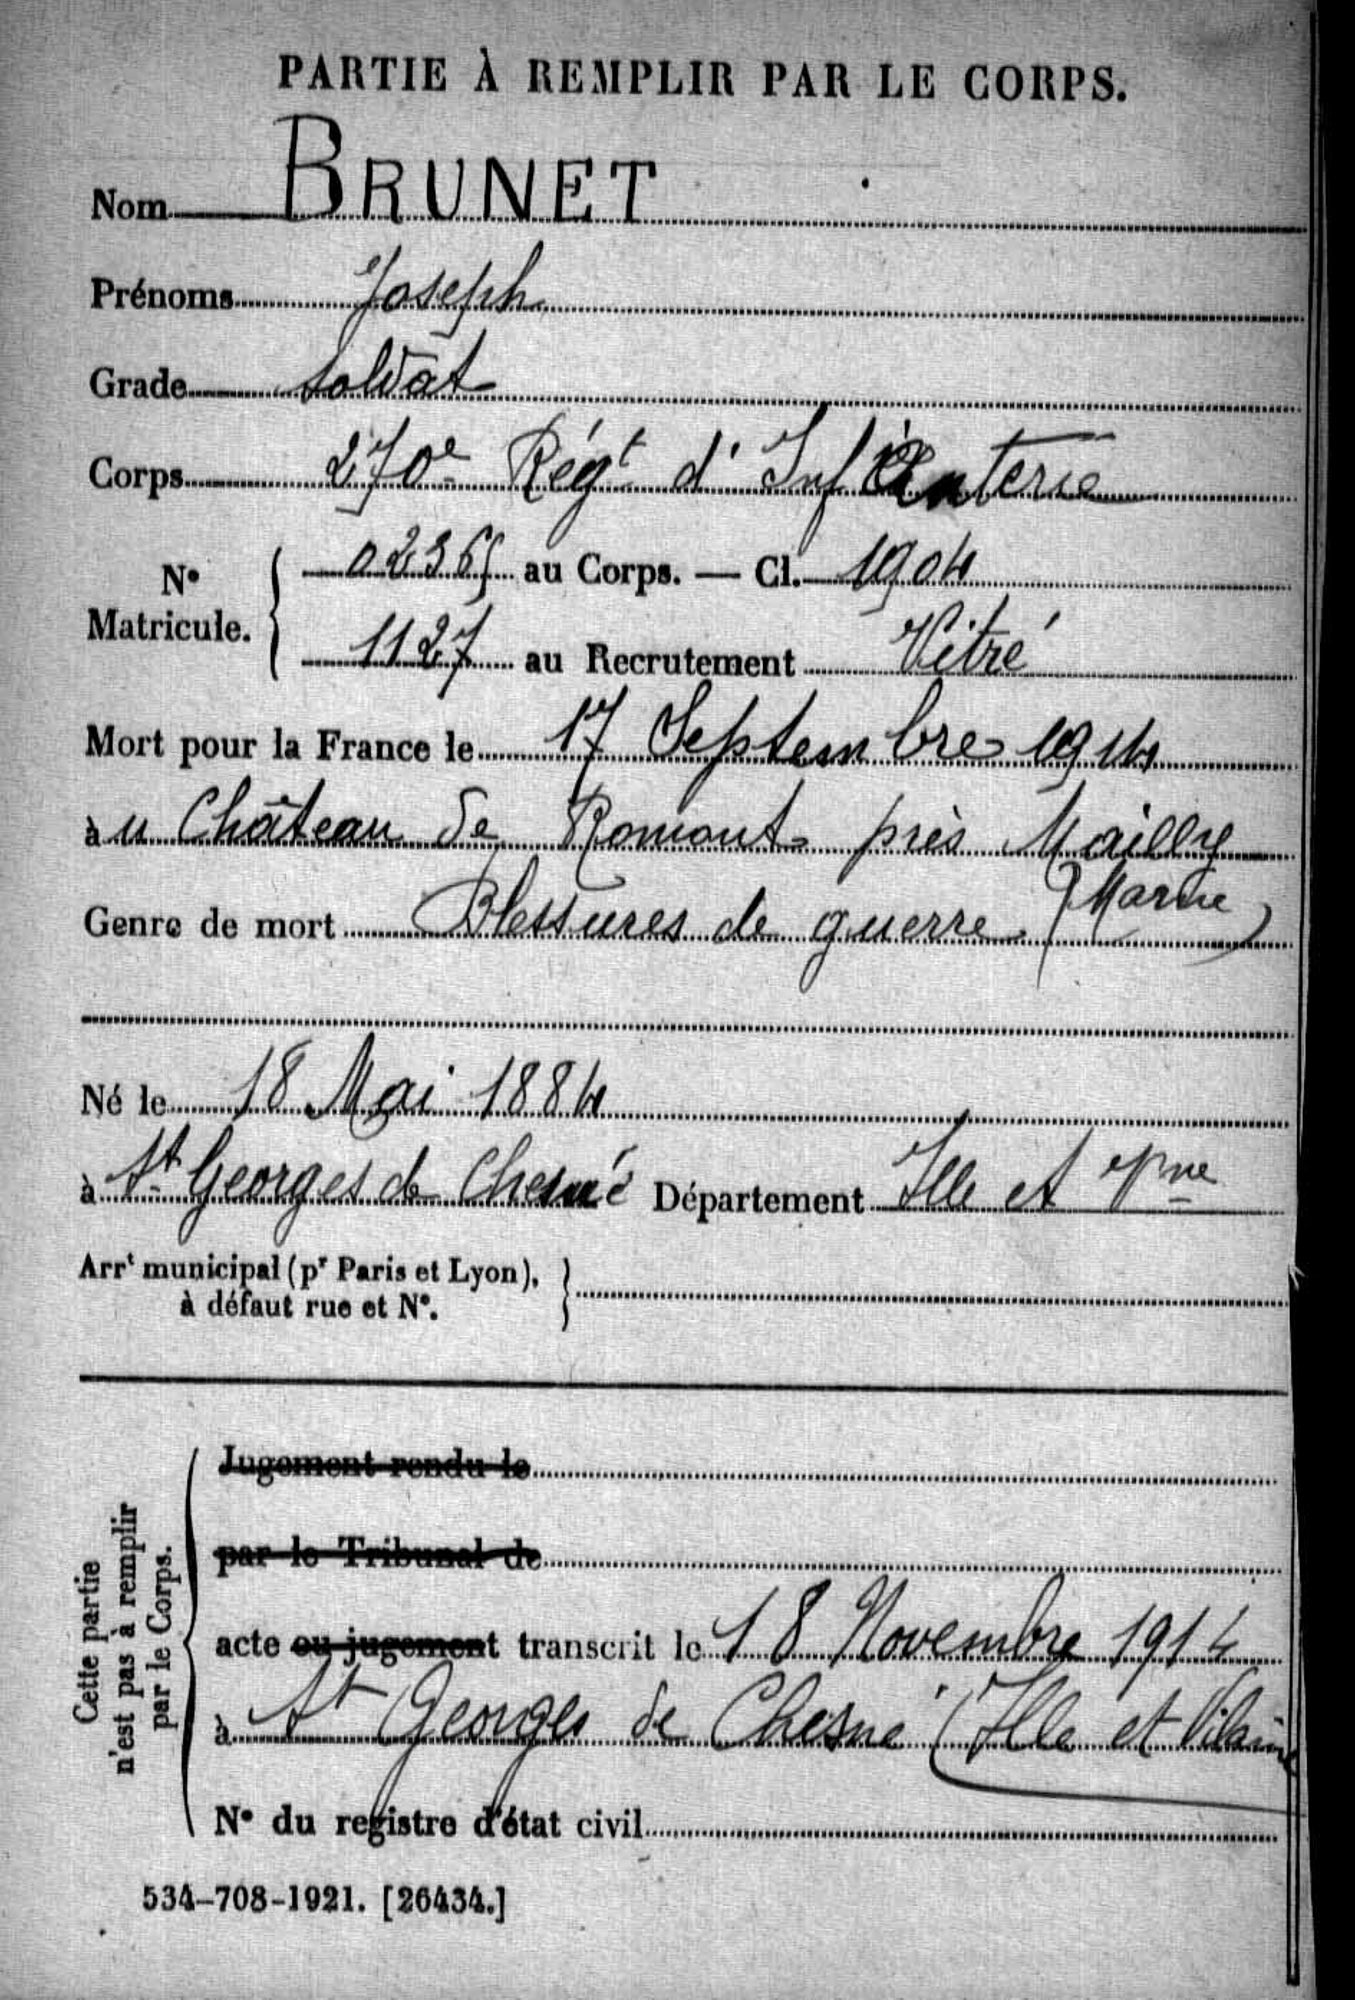 PARTIE À REMPLIR PAR LE CORPS.
Nom BRUNET
Prénoms Joseph
Grade Soldat
Corps 270e Régt d'Infanterie
N° Matricule. 02365 au Corps. — Cl. 1904
1127 au Recrutement Vitré
Mort pour la France le 17 Septembre 1914
àu Château de Romont près Mailly
(Marne)
Genre de mort Blessures de guerre
Né le 18 Mai 1884
à St Georges de Chesné Département Ille et Vne
Arrt municipal (pr Paris et Lyon),
à défaut rue et N°.
Cette partie
n'est pas à remplir
par le Corps.
Jugement rendu le
par le Tribunal de
acte ou jugement transcrit le 18 Novembre 1914
à St Georges de Chesné (Ille et Vilaine
N° du registre d'état civil
534-708-1921. [26434.]